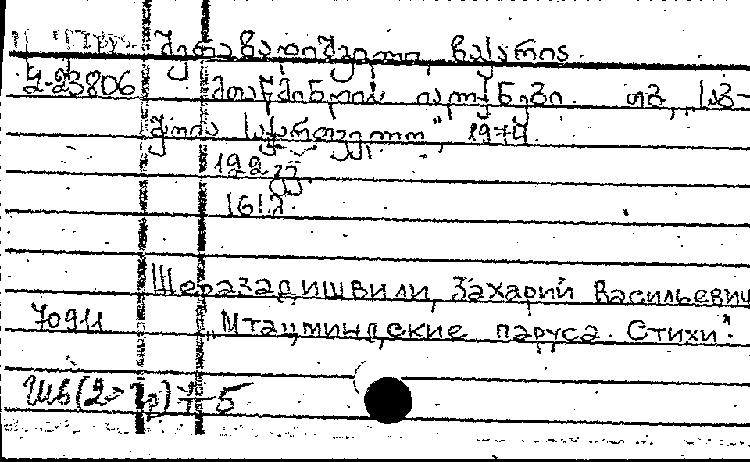 შერაზადიშვილი, ზაქარია.
უ-23806 მთაწმინდის იალქნები. თბ., „საბ-
ჭოთა საქართველო", 1974.
122 გვ.
161 გ.
Шеразадишвили, Захарий Васильевич
70911 „Мтацминдские паруса. Стихи".